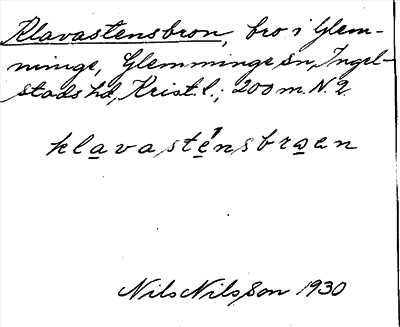 Klavastensbron, bro i Glem-
minge, Glemminge sn, Ingel-
stads hd, Krist. l.; 200 m. N.
klavasténsbroen
Nils Nilsson 1930